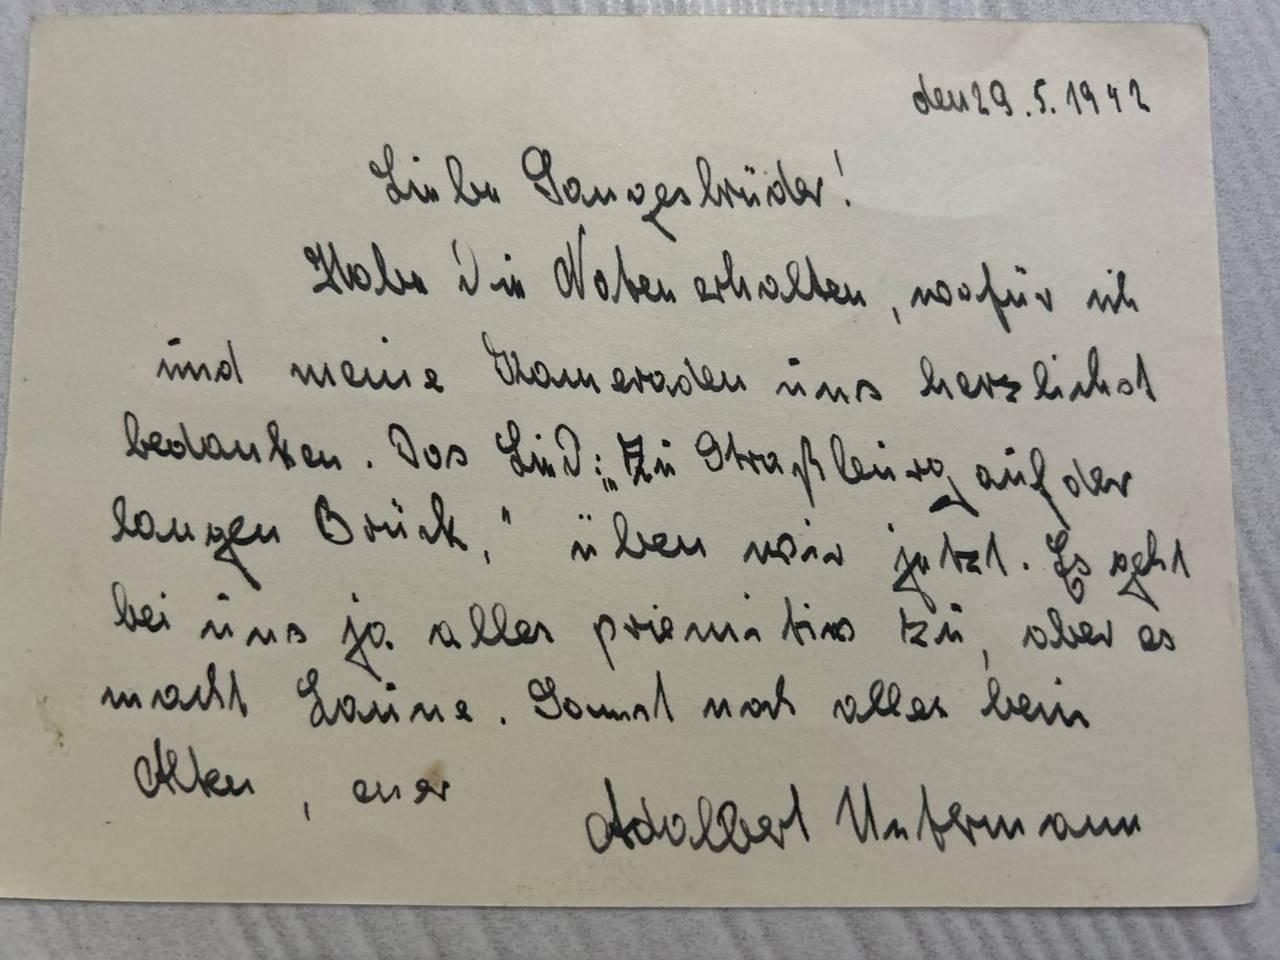 den 29.5.1942
Liebe Sangesbrüder!
Habe die Noten erhalten, wofür ich
und meine Kameraden uns herzlichst
bedanken. Das Lied: „Zu Straßburg auf der
langen Brück," üben wir jetzt. Es geht
bei uns ja alles priemitiv zu, aber es
macht Laune. Sonst noch alles beim
Alten, euer
Adalbert Untermann